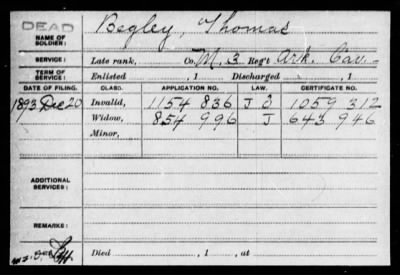 DEAD
NAME OF SOLDIER: Begley, Thomas
SERVICE: Late rank, Co. M, 3 Reg't Ark. Cav.
TERM OF SERVICE: Enlisted , 1 Discharged , 1
DATE OF FILING. CLASS. APPLICATION NO. LAW. CERTIFICATE NO.
1893 Dec 20 Invalid, 1154 836 J 1059 312
Widow, 854 996 J 643 946
Minor,
ADDITIONAL SERVICES:
REMARKS:
Died , 1 , at